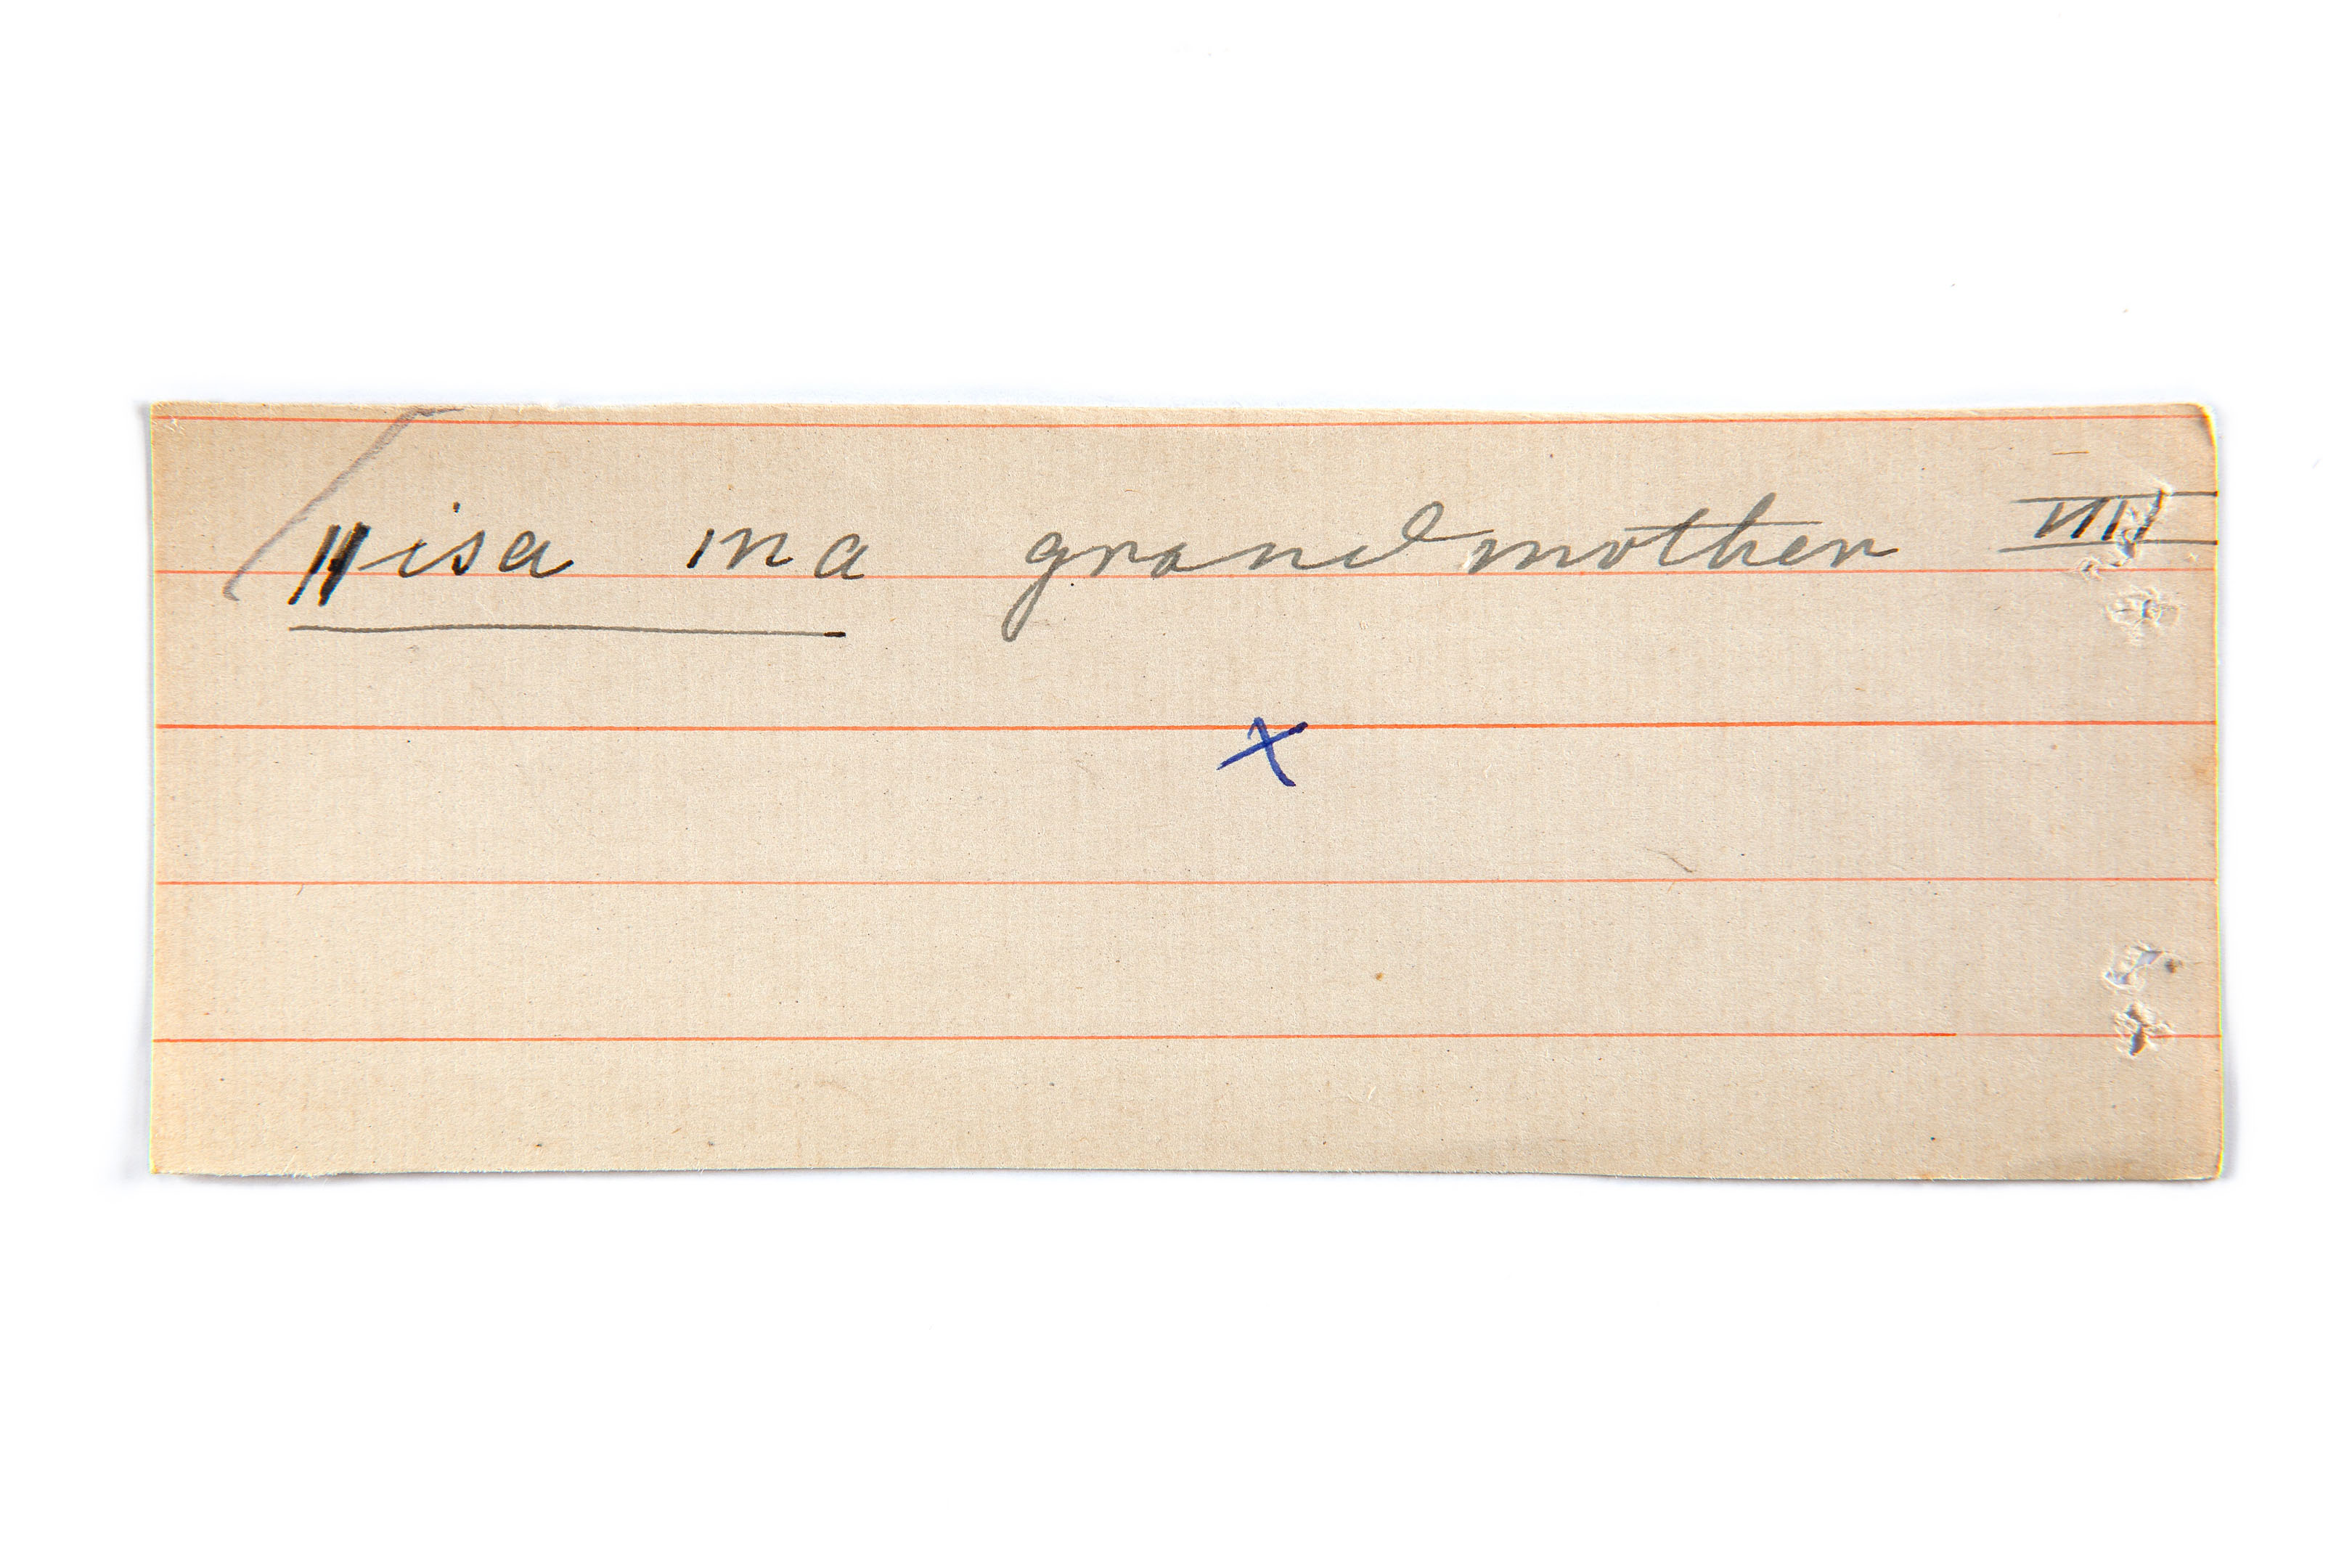 ǁisa ma grandmother VIII
x